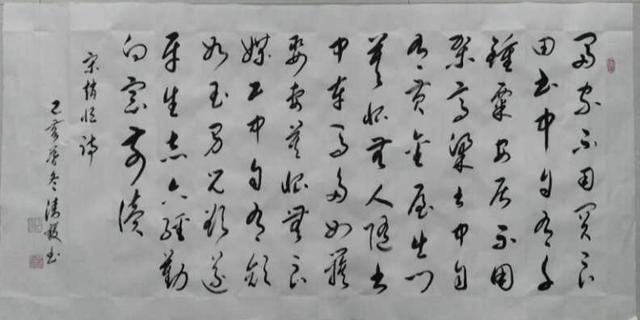 富家不用买良
田书中自有千
鍾粟安居不用
架高梁书中自
有黄金屋出门
莫恨无人随书
中车马多如簇
娶妻莫恨无良
媒书中自有颜
如玉男儿欲遂
平生志六經勤
向窗前读
宋趙恒诗
己亥冬书